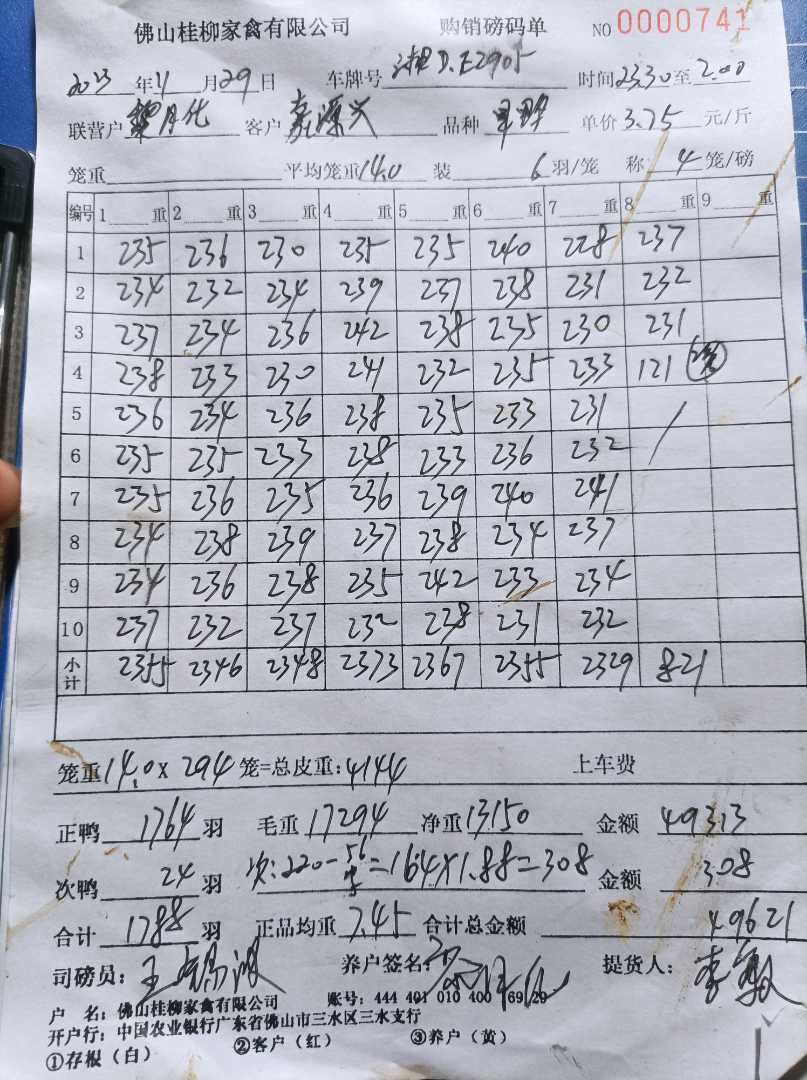 佛山桂柳家禽有限公司 购销磅码单 NO 0000741
2023年11月29日 车牌号 湘D.E2905 时间23.30至2.00
联营户 客户 嘉源兴 品种 单价3.75元/斤
笼重 平均笼重14.0 装 6羽/笼 称 4笼/磅
编号 1 重 2 重 3 重 4 重 5 重 6 重 7 重 8 重 9 重
1 235 236 230 235 235 240 228 237
2 234 232 234 239 237 238 231 232
3 237 234 236 242 238 235 230 231
4 238 233 230 241 232 235 233 121
5 236 234 236 238 235 233 231 /
6 235 235 233 238 233 236 232 /
7 235 236 235 236 239 240 241
8 234 238 239 237 238 234 237
9 234 236 238 235 242 233 234
10 237 232 237 232 238 231 232
小计 2355 2346 2348 2373 2367 2355 2329 821
笼重14.0×294笼=总皮重:4144 上车费
正鸭 1764羽 毛重17294 净重13150 金额 49313
次鸭 24羽 次:220-56=164×1.88=308 金额 308
合计 1788羽 正品均重7.45 合计总金额 49621
司磅员: 养户签名: 提货人:
户 名:佛山桂柳家禽有限公司 账号:444 401 010 400 169 29
开户行:中国农业银行广东省佛山市三水区三水支行
①存根(白) ②客户(红) ③养户(黄)